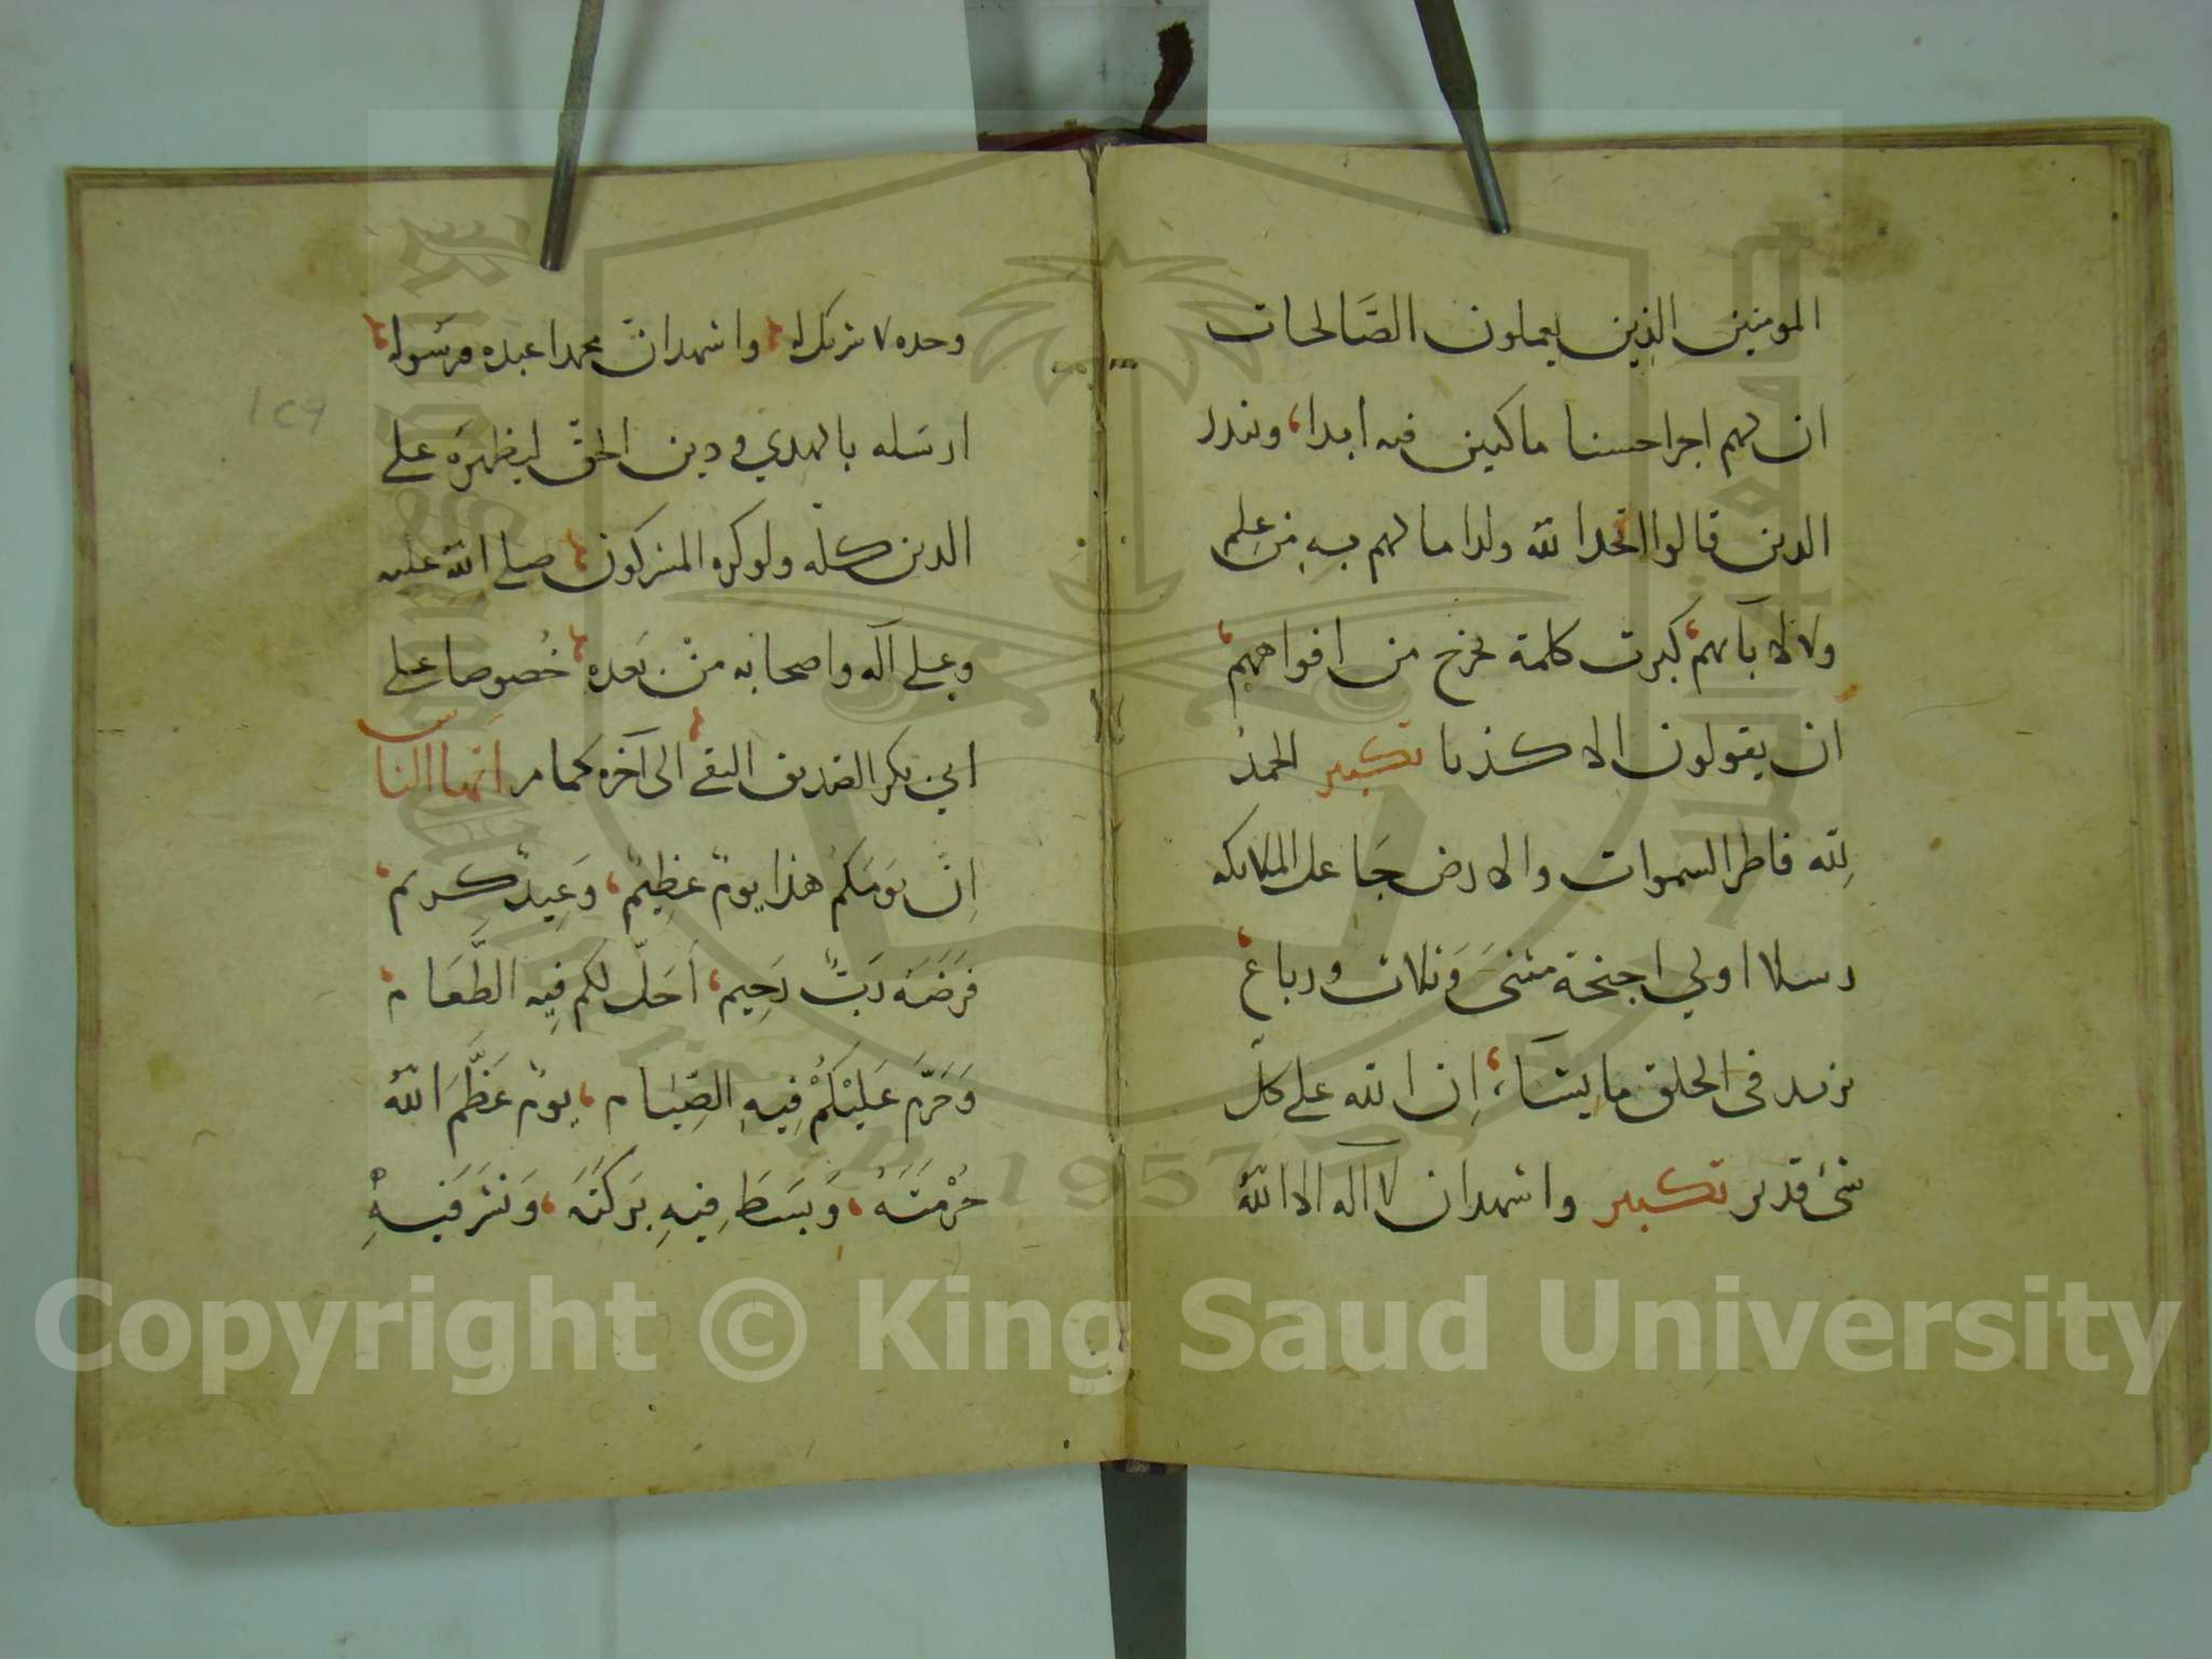 المومنين الذين يعملون الصَّالحات
ان لهم اجرا حسنا ماكثين فيه ابدا، وينذر
الذين قالوا اتخذ الله ولدا ما لهم بِهِ مِن عِلم
ولا لابآئهم، كبرت كلمة تخرج من افواههم،
ان يقولون الا كذبا تكبير الحمدُ
لِلّه فاطر السموات والارض جَاعل الملائكه
رسلا اولي اجنحة مثنىَ وَثلاث ورباع،
يزيد في الخلق ما يشآء، اِن الله على كلّ
شئ قدير تكبير واشهد ان لا اله الا اللهُ
وحده لا شريك له، واشهد انّ محمدا عبده ورسوله،
ارسَله بالهدي ودين الحقّ ليظهرَه على
الدين كلّه ولو كره المشركون، صلى الله عليه
وعلى آله واصحابه مِنْ بَعده، خُصوصا على
ابي بكر الصّديق التقى الى آخره كما مر ايّها الناس
اِنّ يَومَكمْ هَذا يومٌ عَظِيمٌ، وَعِيدٌ كريم،
فَرَضَهُ رَبٌّ رَحِيم، اَحَلّ لكم فِيهِ الطَّعَام،
وَحَرَّمَ عَلَيْكُمْ فِيهِ الصِّيَام، يومٌ عَظَّمَ اللهُ
حُرْمَتَهُ، وَبَسَطَ فِيهِ بَركَتَهُ، وَنَشَرَ فِيهِ
١٢٩
جامعة الملك سعود
King Saud University
1957
Copyright © King Saud University